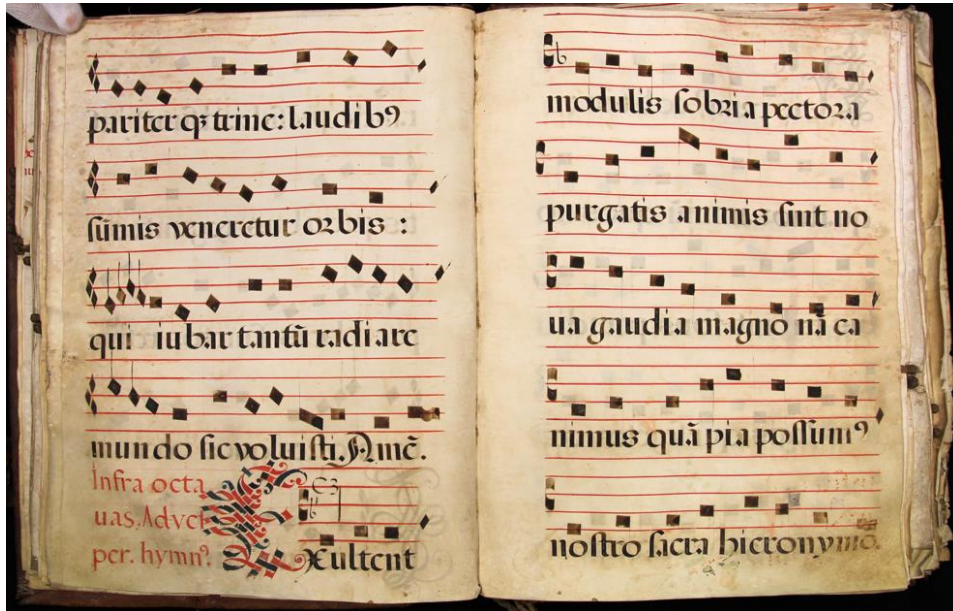 pariter qȝ trine: laudibꝯ
sūmis veneretur orbis :
qui iubar tantū radiare
mundo sic voluisti. Amē.
Infra octa
uas. Aduēt
per. hymnꝯ.
Exultent
modulis sobria pectora
purgatis animis sint no
ua gaudia magno nā ca
nimus quā pia possumꝯ
nostro sacra hieronymo.